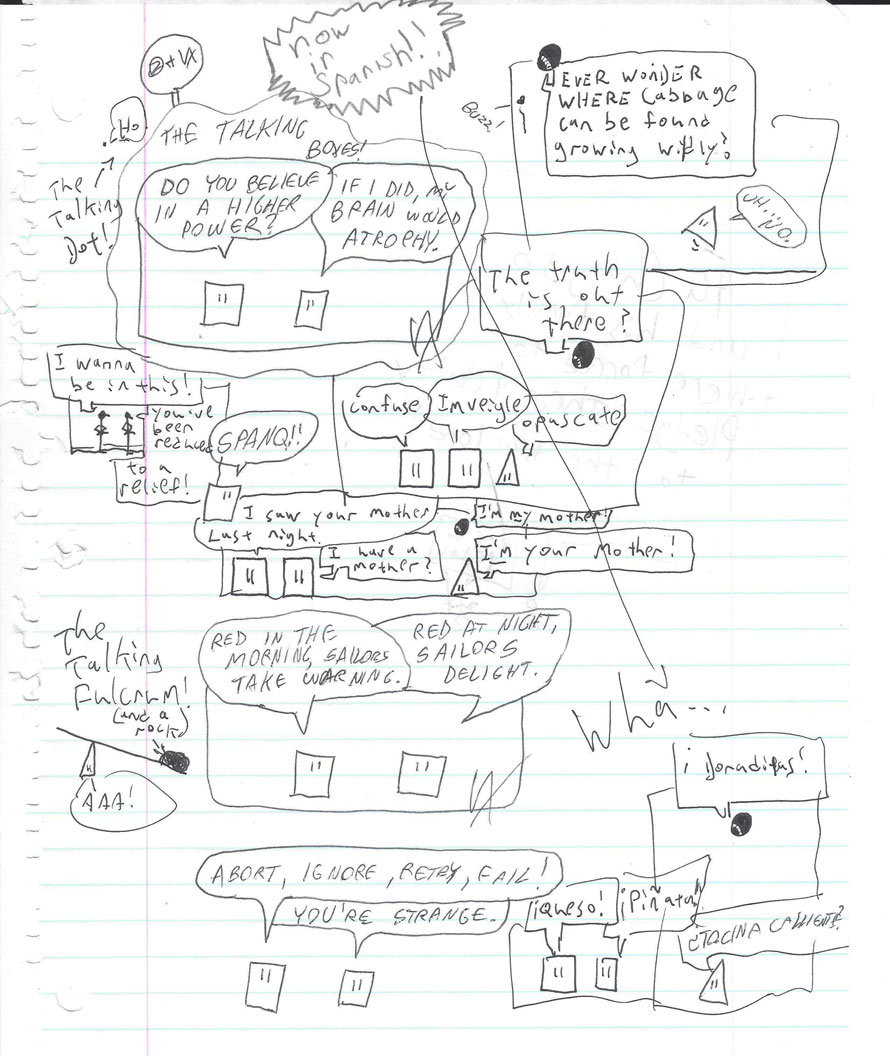 now
in
Spanish!!
Ho
THE TALKING
BOXES!
The
Talking
Dot!
DO YOU BELIEVE
IN A HIGHER
POWER?
IF I DID, MY
BRAIN WOULD
ATROPHY.
Buzz!
EVER WONDER
WHERE Cabbage
can be found
growing wildly?
UH, NO.
The truth
is out
there?
I wanna
be in this!
you've
been
reduced
to a
relief!
SPANQ!!
confuse
Imveigle
opuscate
I saw your mother
Last night.
I have a
mother?
I'm my mother!
I'm your mother!
The
Talking
Fulcrum!
(and a
rock)
AAA!
RED IN THE
MORNING, SAILORS
TAKE WARNING.
RED AT NIGHT,
SAILORS
DELIGHT.
Wha...
¡Doraditas!
ABORT, IGNORE, RETRY, FAIL!
YOU'RE STRANGE.
¡Queso!
¡Piñata!
¿TOCINA CALLIENTE?